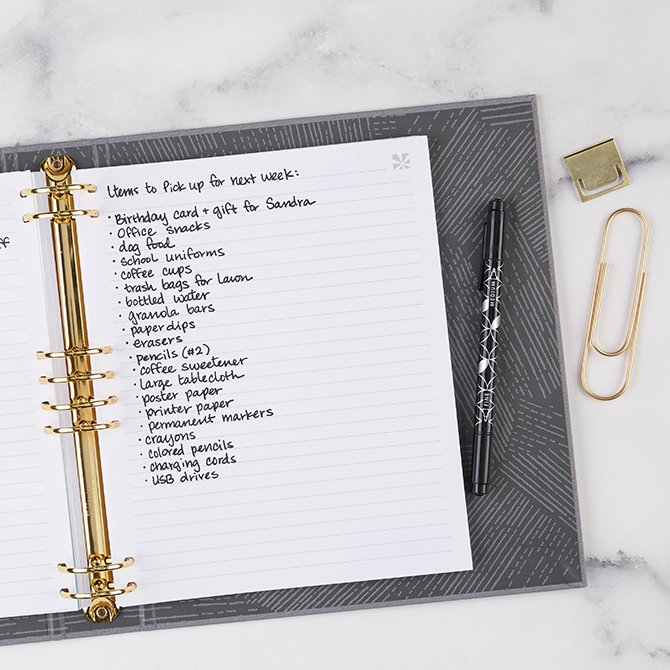 ff
Items to Pick up for next week:
• Birthday card + gift for Sandra
• Office snacks
• dog food
• school uniforms
• coffee cups
• trash bags for lawn
• bottled water
• granola bars
• paperclips
• erasers
• pencils (#2)
• coffee sweetener
• Large tablecloth
• poster paper
• printer paper
• permanent markers
• crayons
• colored pencils
• charging cords
• USB drives
MEDIUM
FINE